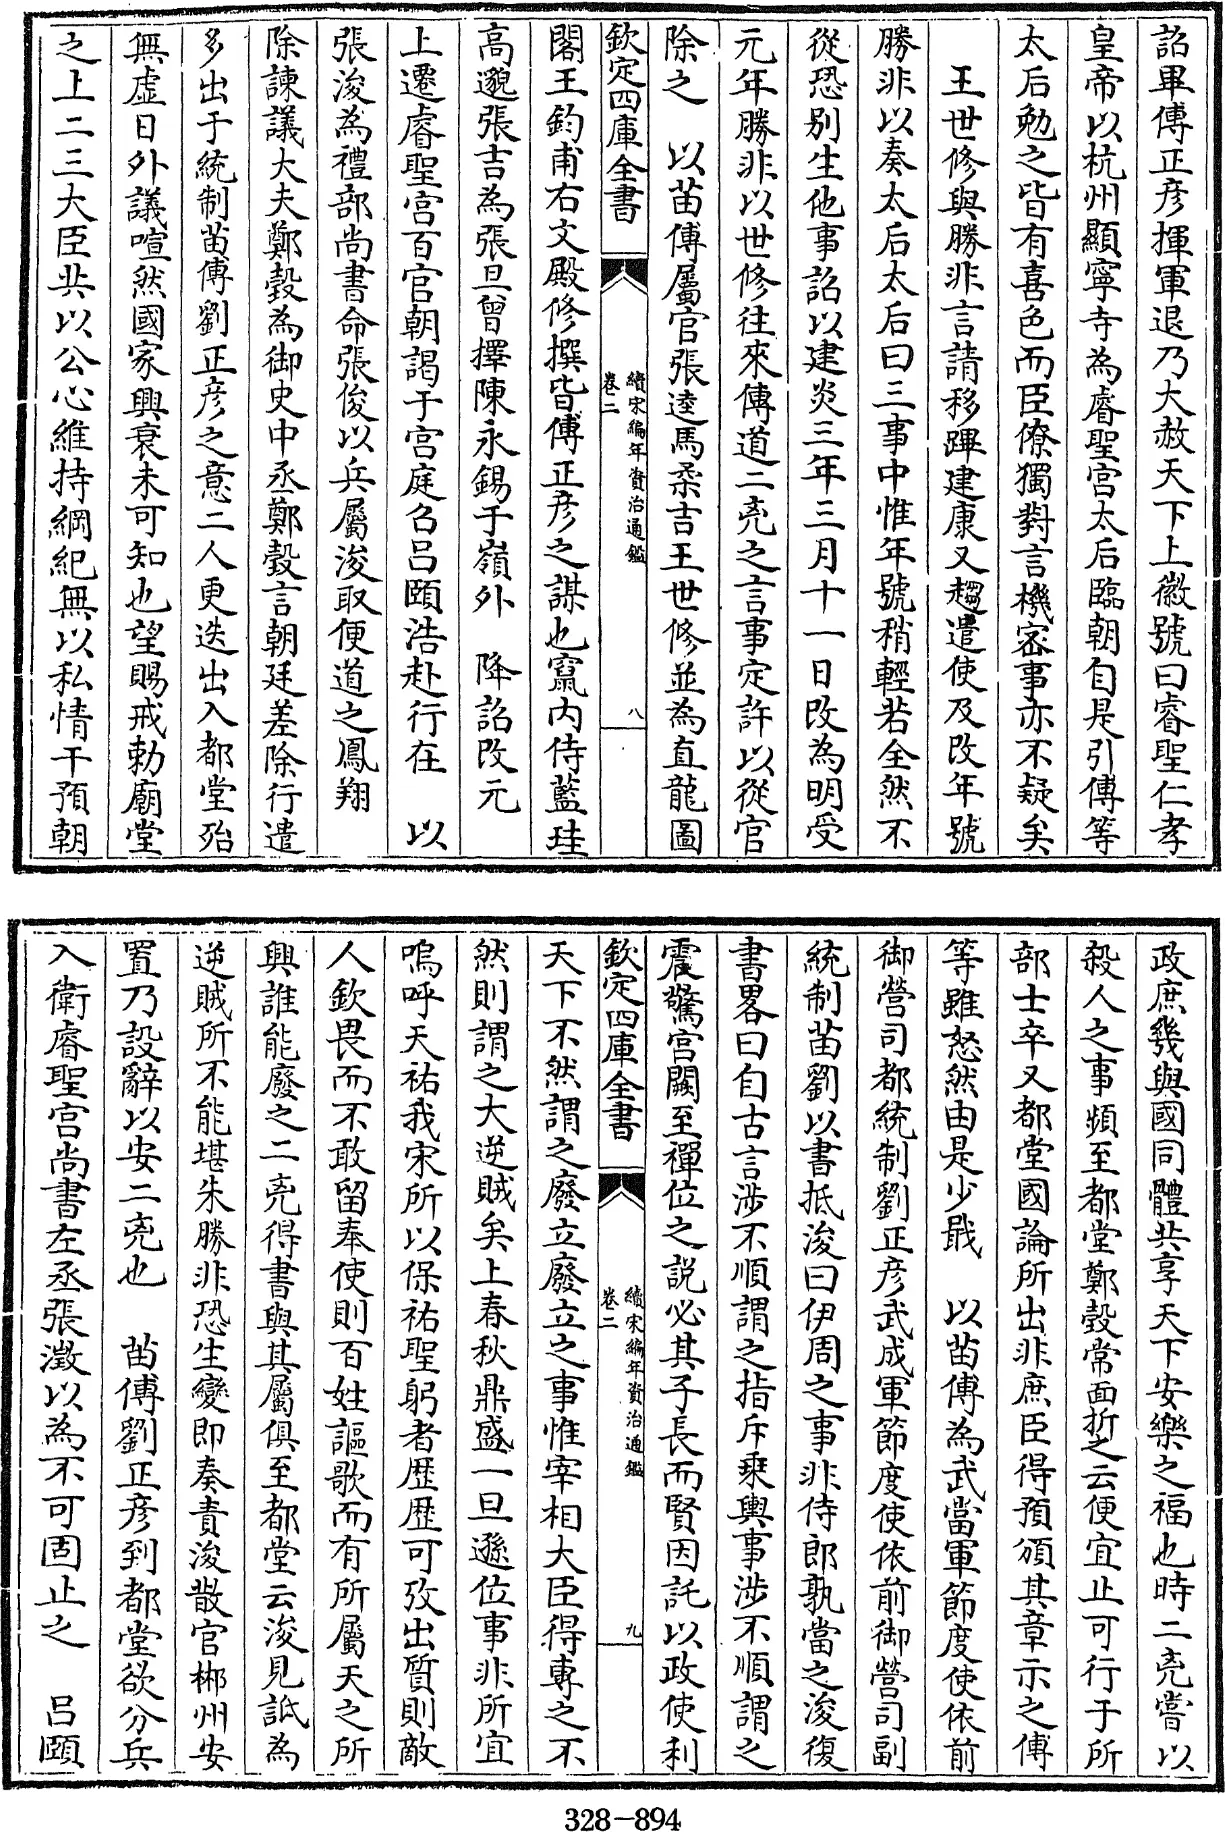 詔畢傅正彦揮軍退乃大赦天下上徽號曰睿聖仁孝
皇帝以杭州顯寧寺為睿聖宫太后臨朝自是引傅等
太后勉之皆有喜色而臣僚獨對言機宻事亦不疑矣
王世修與勝非言請移蹕建康又趨遣使及改年號
勝非以奏太后太后曰三事中惟年號稍輕若全然不
從恐别生他事詔以建炎三年三月十一日改為明受
元年勝非以世修往來傳道二兇之言事定許以從官
除之　以苗傅屬官張逵馬柔吉王世修並為直龍圖
欽定四庫全書
續宋編年資治通鑑
卷二
八
閣王鈞甫右文殿修撰皆傅正彦之謀也竄内侍藍珪
高邈張吉為張旦曾擇陳永錫于嶺外　降詔改元
上遷睿聖宫百官朝謁于宫庭名吕頤浩赴行在　以
張浚為禮部尚書命張俊以兵屬浚取便道之鳳翔
除諫議大夫鄭瑴為御史中丞鄭瑴言朝廷差除行遣
多出于統制苗傅劉正彦之意二人更迭出入都堂殆
無虚日外議喧然國家興衰未可知也望賜戒勅廟堂
之上二三大臣共以公心維持綱紀無以私情干預朝
政庶幾與國同體共享天下安樂之福也時二兇嘗以
殺人之事頻至都堂鄭瑴常面折之云便宜止可行于所
部士卒又都堂國論所出非庶臣得預頒其章示之傅
等雖怒然由是少戢　以苗傅為武當軍節度使依前
御營司都統制劉正彦武成軍節度使依前御營司副
統制苗劉以書抵浚曰伊周之事非侍郎孰當之浚復
書畧曰自古言涉不順謂之指斥乗輿事涉不順謂之
震驚宫闕至禪位之説必其子長而賢因託以政使利
欽定四庫全書
續宋編年資治通鑑
卷二
九
天下不然謂之廢立廢立之事惟宰相大臣得専之不
然則謂之大逆賊矣上春秋鼎盛一旦遜位事非所宜
嗚呼天祐我宋所以保祐聖躬者歴歴可攷出質則敵
人欽畏而不敢留奉使則百姓謳歌而有所屬天之所
興誰能廢之二兇得書與其屬俱至都堂云浚見詆為
逆賊所不能堪朱勝非恐生變即奏責浚散官郴州安
置乃設辭以安二兇也　苗傅劉正彦到都堂欲分兵
入衛睿聖宫尚書左丞張澂以為不可固止之　吕頤
328-894